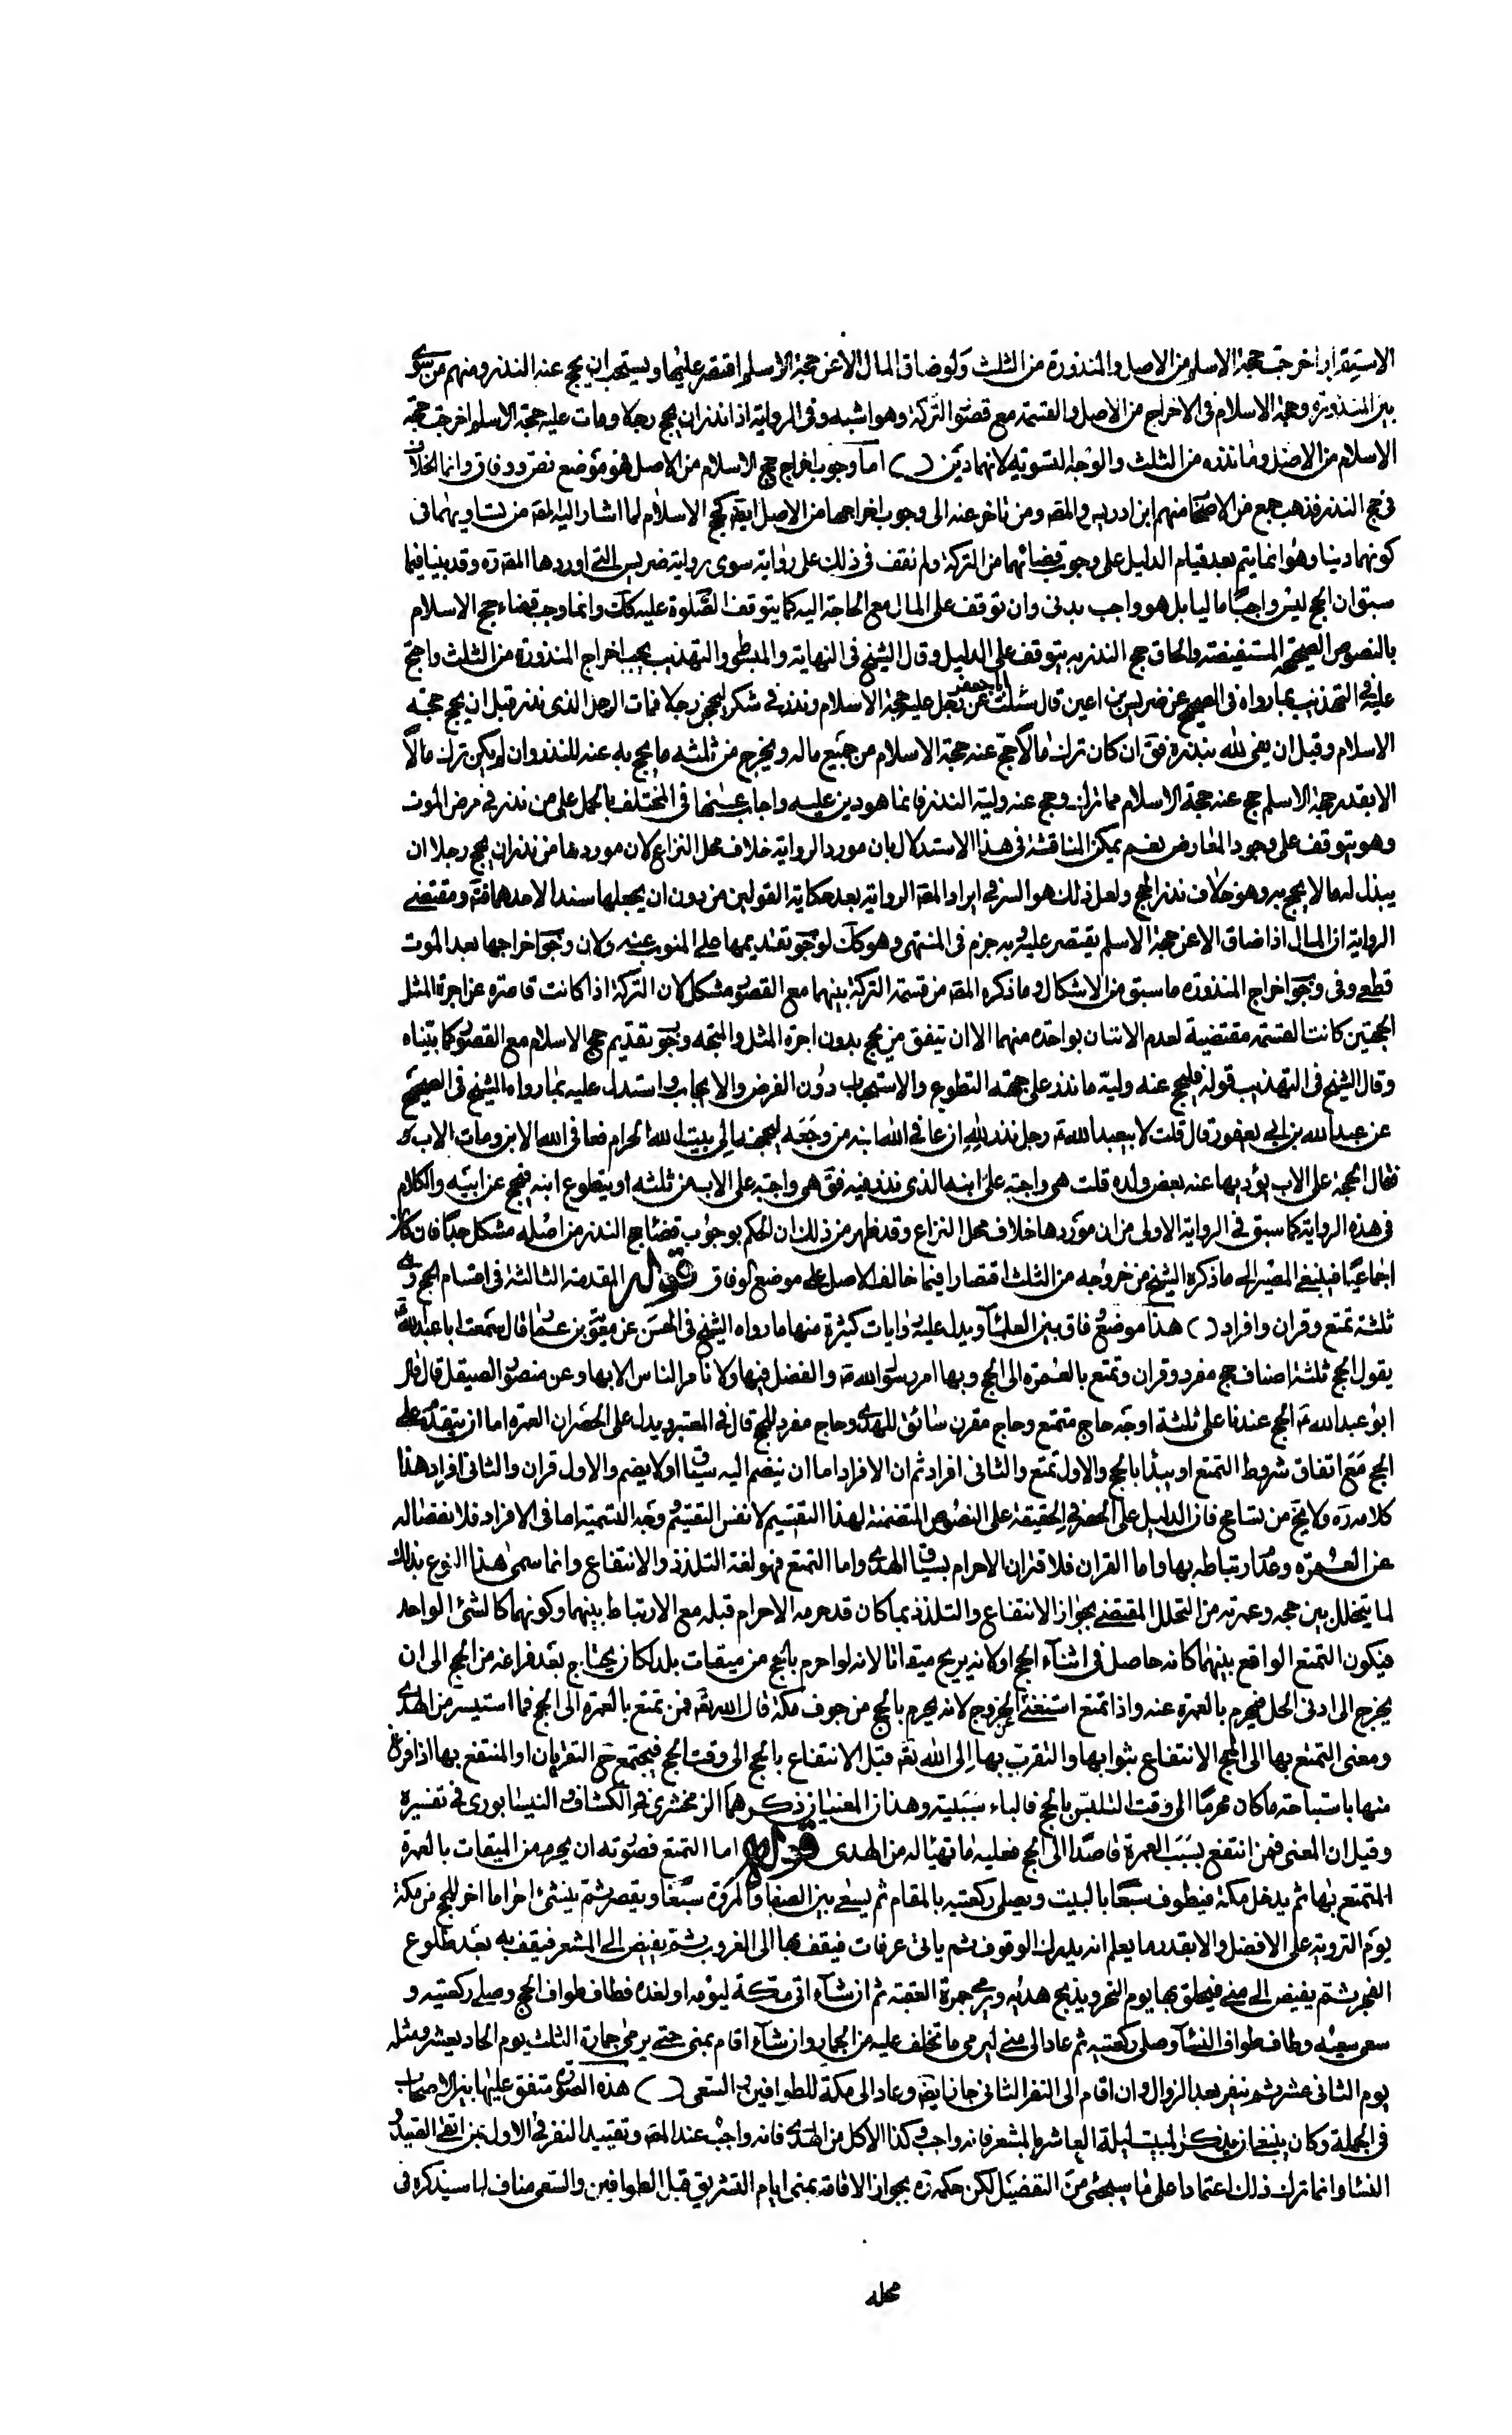 الاستقرار اخرجت حجة الاسلم من الاصل والمنذورة من الثلث ولو ضاق المال الا عن حجة الاسلم اقتصر عليها ويستحب ان يحج عنه النذر ومنهم من سوى
بين المنذورة وحجة الاسلام فى الاخراج من الاصل والقسمة مع قصور التركة وهو اشبه وفى الرواية اذا نذر ان يحج رجلا ومات وعليه حجة الاسلم اخرجت حجة
الاسلام من الاصل وما نذره من الثلث والوجه التسوية لانهما دين ( ) اما وجوب اخراج حج الاسلام من الاصل فهو موضع نص ووفاق وانما الخلاف
فى حج النذر فذهب جمع من الاصحاب منهم ابن ادريس والمصه ومن تاخر عنه الى وجوب اخراجها من الاصل ايضه كحج الاسلام لما اشار اليه المصه من تساويهما فى
كونهما دينا وهو انما يتم بعد قيام الدليل على وجوب قضائهما من التركة ولم نقف فى ذلك على رواية سوى رواية ضريس التى اوردها المصه ره وقد بينا فيما
سبق ان الحج ليس واجبا ماليا بل هو واجب بدنى وان توقف على المال مع الحاجة اليه كما يتوقف الصلوة عليه كك وانما وجب قضاء حج الاسلام
بالنصوص الصحيحة المستفيضة والحاق حج النذر به يتوقف على الدليل وقال الشيخ فى النهاية والمبسوط والتهذيب يجب اخراج المنذورة من الثلث واحتج
عليه فى التهذيب بما رواه فى الصحيح عن ضريس بن اعين قال سئلت ابا جعفر عن رجل عليه حجة الاسلام ونذر فى شكر ليحجن رجلا فمات الرجل الذى نذر قبل ان يحج حجة
الاسلام وقبل ان يفى لله بنذره فق ان كان ترك مالا حج عنه حجة الاسلام من جميع ماله ويخرج من ثلثه ما يحج به عنه للنذر وان لم يكن ترك مالا
الا بقدر حجة الاسلم حج عنه حجة الاسلام مما ترك وحج عنه وليه النذر فانما هو دين عليه واجاب عنها فى المختلف بالحمل على من نذر فى مرض الموت
وهو يتوقف على وجود المعارض نعم يمكن المناقشة فى هذا الاستدلال بان مورد الرواية خلاف محل النزاع لان موردها من نذر ان يحج رجلا ان
يبذل له ما لا يحج به وهو خلاف نذر الحج ولعل ذلك هو السر فى ايراد المصه الرواية بعد حكاية القولين من دون ان يجعلها سندا لاحدهما فته ومقتضى
الرواية ان المال اذا ضاق الا عن حجة الاسلم يقتصر عليه وبه جزم فى المنتهى وهو كك لوجوب تقديمها على المنوب عنه ولان وجوب اخراجها بعد الموت
قطعى وفى وجوب اخراج المنذوره ما سبق من الاشكال وما ذكره المصه من قسمة التركة بينهما مع القصور مشكل لان التركة اذا كانت قاصرة عن اجرة المثل
للحجتين كانت القسمة مقتضية لعدم الاتيان بواحدة منهما الا ان يتفق من يحج بدون اجرة المثل والمتجه وجوب تقديم حج الاسلام مع القصور كما بيناه
وقال الشيخ فى التهذيب قوله فليحج عنه وليه ما نذر على جهة التطوع والاستحباب دون الفرض والايجاب واستدل عليه بما رواه الشيخ فى الصحيح
عن عبد الله بن ابى يعفور قال قلت لابيعبد الله ع رجل نذر لله ان عافى الله ابنه من وجعه ليحجنه الى بيت الله الحرام فعافى الله الابن ومات الاب
فقال الحجة على الاب يؤديها عنه بعض ولده قلت هى واجبة على ابنه الذى نذر فيه فق هى واجبة على الاب من ثلثه او يتطوع ابنه فيحج عن ابيه والكلام
فى هذه الرواية كما سبق فى الرواية الاولى من ان موردها خلاف محل النزاع وقد ظهر من ذلك ان الحكم بوجوب قضاء حج النذر من اصله مشكل جدا فان كان
اجماعيا فينبغى المصير الى ما ذكره الشيخ من خروجه من الثلث اقتصارا فيما خالف الاصل على موضع الوفاق قوله المقدمة الثالثة فى اقسام الحج وهى
ثلثة تمتع وقران وافراد ( ) هذا موضع وفاق بين العلماء ويدل عليه روايات كثيرة منها ما رواه الشيخ فى الحسن عن معوية بن عمار قال سمعت ابا عبد الله
يقول الحج ثلثة اصناف حج مفرد وقران وتمتع بالعمرة الى الحج وبها امر رسول الله ص والفضل فيها ولا نامر الناس الا بها وعن منصور الصيقل قال قال
ابو عبد الله ع الحج عندنا على ثلثة اوجه حاج متمتع وحاج مقرن سائق للهدى وحاج مفرد للحج قال فى المعتبر ويدل على الحصر ان العمرة اما ان يتقدم على
الحج مع اتفاق شروط التمتع او يبدأ بالحج والاول تمتع والثانى افراد ثم ان الافراد اما ان ينضم اليه سياق او لا يضم والاول قران والثانى افراد هذا
كلامه ره ولا يخ من تسامح فان الدليل على الحصر فى الحقيقة على النصوص المتضمنة لهذا التقسيم لا نفس التقسيم وجه التسمية اما فى الافراد فلانفصاله
عن العمره وعدم ارتباطه بها واما القران فلاقتران الاحرام بسياق الهدى واما التمتع فهو لغة التلذذ والانتفاع وانما سمى هذا النوع بذلك
لما يتخلل بين حجه وعمرته من التحلل المقتضى بجواز الانتفاع والتلذذ بما كان قد حرمه الاحرام قبله مع الارتباط بينهما وكونهما كالشئ الواحد
فيكون التمتع الواقع بينهما كانه حاصل فى اثناء الحج او لانه يربح ميقاتا لانه لو احرم بالحج من ميقات بلده لكان يحتاج بعد فراغه من الحج الى ان
يخرج الى ادنى الحل فيحرم بالعمرة عنه واذا تمتع استغنى عن الخروج لانه يحرم بالحج من جوف مكة قال الله تعه فمن تمتع بالعمره الى الحج فما استيسر من الهدى
ومعنى التمتع بها الى الحج الانتفاع بثوابها والتقرب بها الى الله تعه قبل الانتفاع بالحج الى وقت الحج فيجتمع ح التقربان او المنتفع بها اذا فرغ
منها باستباحته ما كان محرما الى وقت التلبس بالحج فالباء سببية وهذان المعنيان ذكرهما الزمخشرى فى الكشاف والنيسابورى فى تفسيره
وقيل ان المعنى فمن انتفع بسبب العمرة قاصدا الى الحج فعليه ما تهيا له من الهدى قوله اما التمتع فصورته ان يحرم من الميقات بالعمرة
المتمتع بها ثم يدخل مكة فيطوف سبعا بالبيت ويصلى ركعتيه بالمقام ثم يسعى بين الصفا والمروة سبعا ويقصر ثم ينشئ احراما اخر للحج من مكة
يوم التروية على الافضل والا بقدر ما يعلم انه يدرك الوقوف ثم ياتى عرفات فيقف بها الى الغروب ثم يفيض الى المشعر فيقف به بعد طلوع
الفجر ثم يفيض الى منى فيحلق بها يوم النحر ويذبح هديه ويرمى جمرة العقبة ثم ان شاء اتى مكة ليومه او لغده فطاف طواف الحج وصلى ركعتيه و
سعى سعيه وطاف طواف النساء وصلى ركعتيه ثم عاد الى منى ليرمى ما تخلف عليه من الجمار وان شاء اقام بمنى حتى يرمى جماره الثلث يوم الحاديعشر ومثله
يوم الثانى عشر ثم ينفر بعد الزوال وان اقام الى النفر الثانى جاز ايضه وعاد الى مكة للطوافين والسعى ( ) هذه الصورة متفق عليها بين الاصحاب
فى الجملة وكان ينبغى ان يذكر المبيت ليلة العاشر بالمشعر فانه واجب وكذا الاكل من الهدى فانه واجب عند المصه وتقييد النفر فى الاول بمن اتقى الصيد و
النساء وانما ترك ذلك اعتمادا على ما سيجئ من التفصيل لكن حكمه ره بجواز الاقامة بمنى ايام التشريق قبل الطوافين والسعى مناف لما سيذكره فى
محله